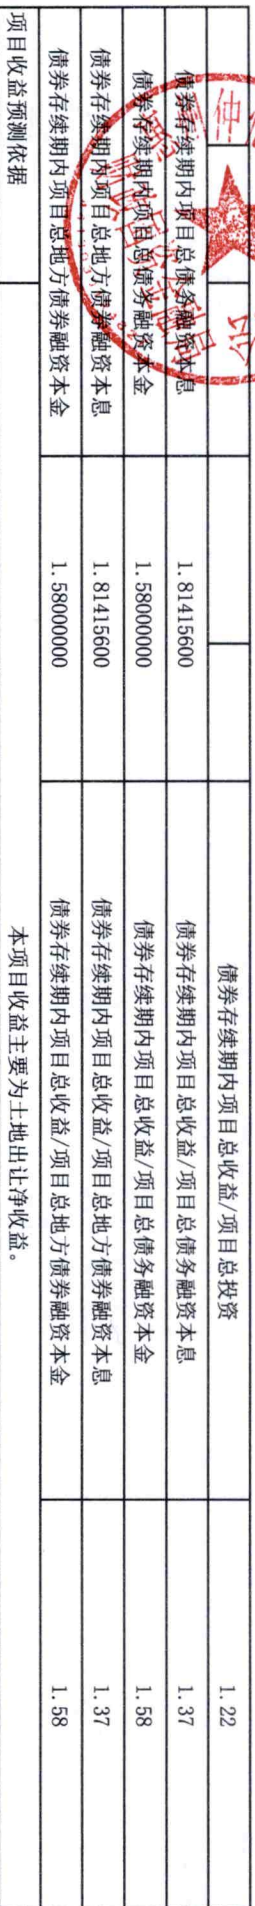 债券存续期内项目总收益/项目总投资 1.22
债券存续期内项目总债务融资本息 1.81415600 债券存续期内项目总收益/项目总债务融资本息 1.37
债券存续期内项目总债务融资本金 1.58000000 债券存续期内项目总收益/项目总债务融资本金 1.58
债券存续期内项目总地方债券融资本息 1.81415600 债券存续期内项目总收益/项目总地方债券融资本息 1.37
债券存续期内项目总地方债券融资本金 1.58000000 债券存续期内项目总收益/项目总地方债券融资本金 1.58
项目收益预测依据 本项目收益主要为土地出让净收益。